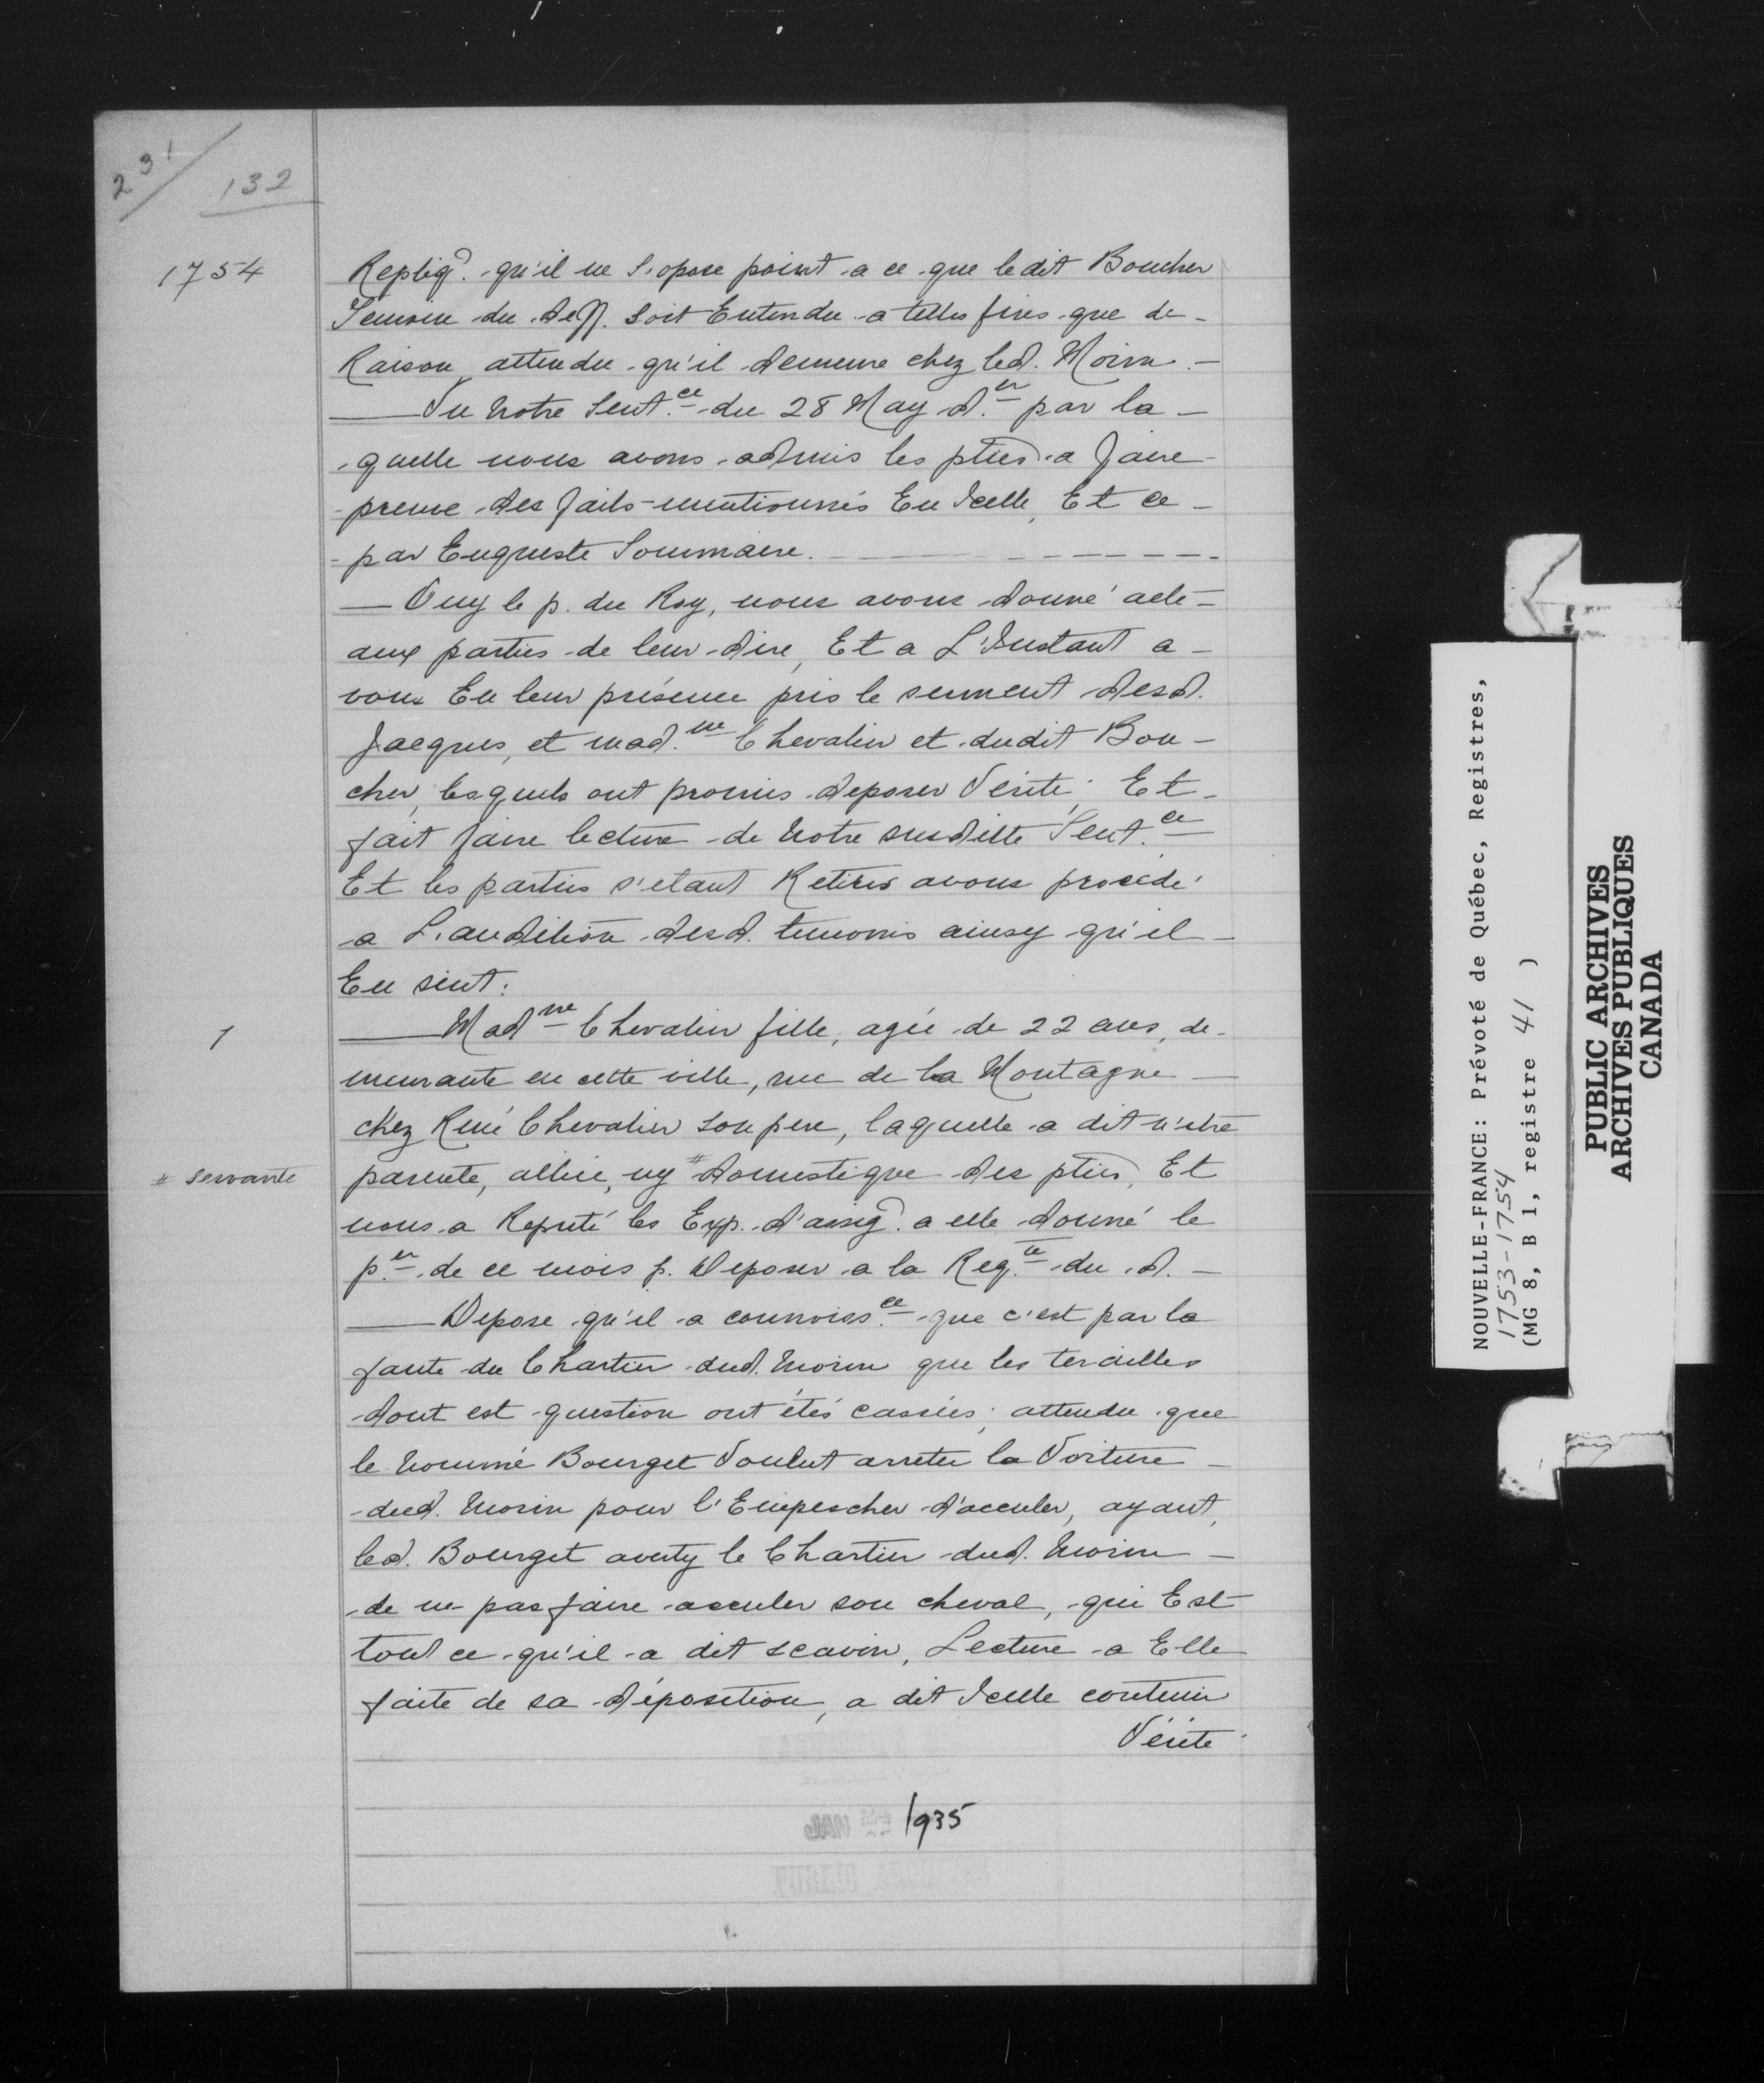 231
132
1754
Repliq. qu'il ne S'opose point a ce que ledit Boucher
Temoin du deff. soit Entendu a telles fins que de -
Raison, attendu qu'il demeure chez led. Morin. -
Vu Notre Sent.ce du 28 May d.er par la -
quelle nous avons admis les pties a faire
preuve des faits mentionnés En Icelle, Et ce -
par Enqueste Sommaire.
Ouy le p. du Roy, nous avons donné acte -
aux parties de leur dire, Et a L'Instant a -
vons En leur présence pris le serment desd.
Jacques, et mad.ne Chevalier et dudit Bou -
cher, lesquels ont promis deposer Vérité; Et -
fait faire lecture de Notre susditte Sent.ce
Et les parties s'etant Retirés avons procédé
a L'audition desd. temoins ainsy qu'il -
En suit:
1
Mad.ne Chevalier fille, agée de 22 ans, de -
meurante en cette ville, rue de la Montagne -
chez René Chevalier son pere, laquelle a dit n'etre
# servante
parente, alliée, ny # domestique des pties, Et
nous a Reputé les Exp. d'assig. a elle donné le
p.er de ce mois p. Deposer a la Req.te du d. -
Depose qu'il a connoiss.ce que c'est par la
faute du Chartier dud. Morin que les
dont est question ont étés cassées; attendu que
le Nommé Bourget Voulut arreter la Voiture -
dud. Morin pour l'Empescher d'acculer, ayant,
led. Bourget averty le Chartier dud. Morin -
de ne pas faire acculer son cheval, qui Est
tout ce qu'il a dit scavoir, Lecture a Elle
faite de sa déposition, a dit Icelle contenir
Vérité
1935
NOUVELLE-FRANCE: Prévoté de Québec, Registres,
1753-1754
(MG 8, B 1, registre 41 )
PUBLIC ARCHIVES
ARCHIVES PUBLIQUES
CANADA